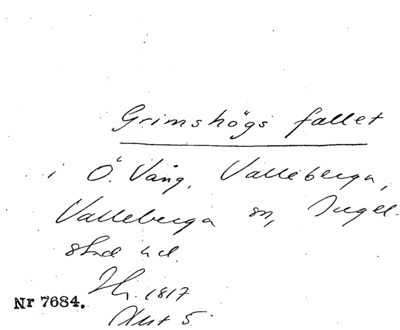 Grimshögs fallet
i Ö. Vång, Valleberga,
Valleberga sn, Ingel-
sta hd.
1817
Nr 7684.
Akt 5.